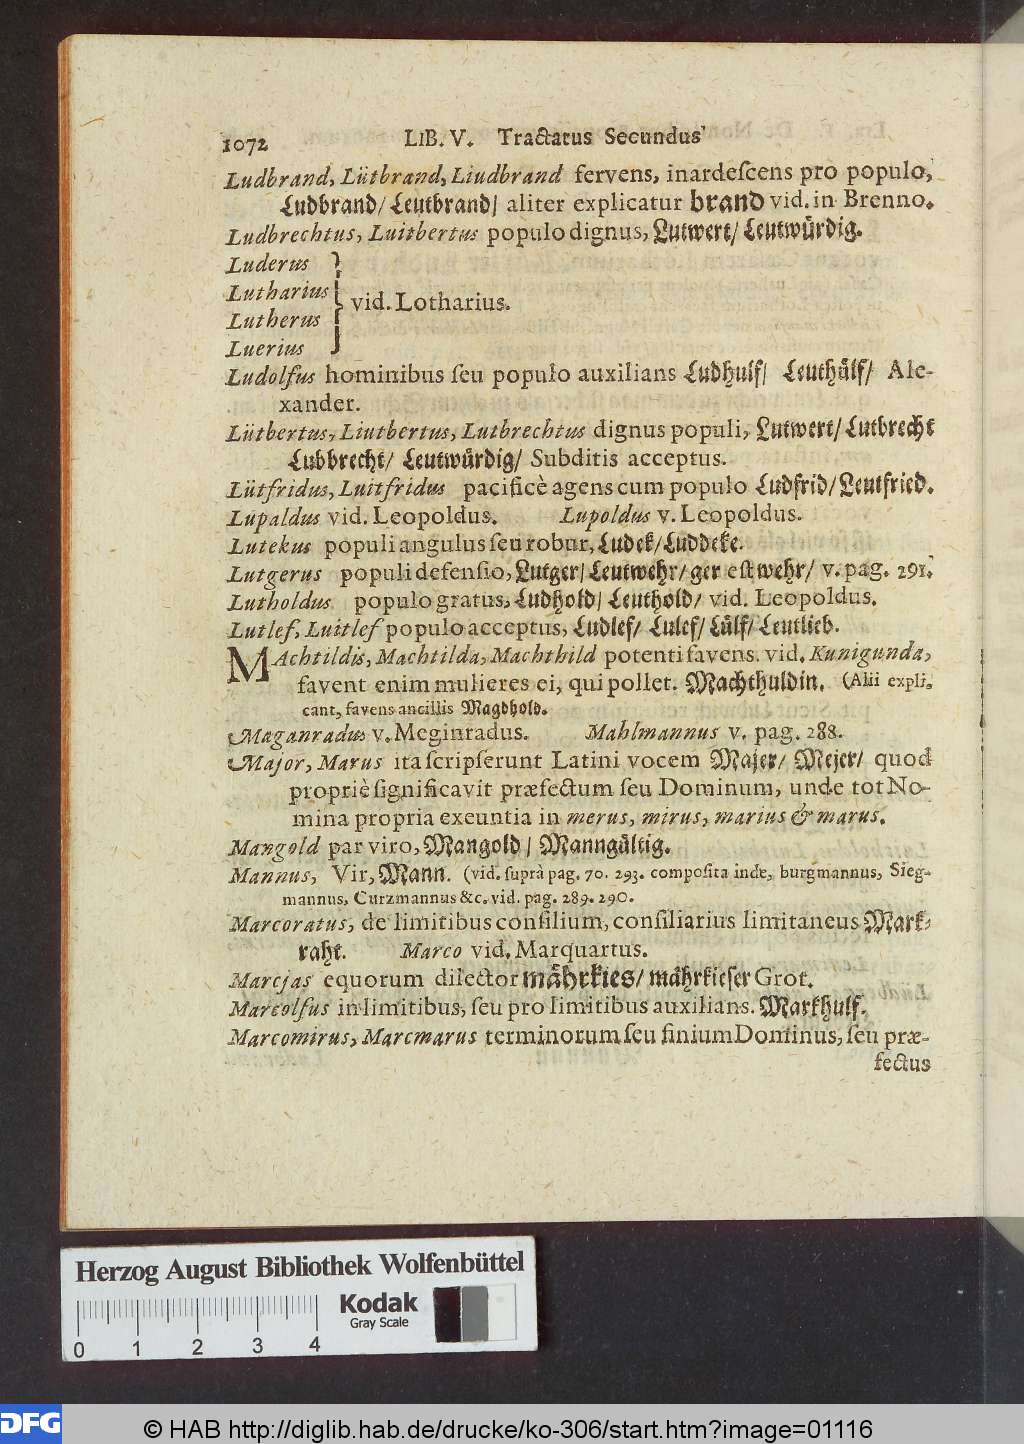 1072 LIB. V. Tractatus Secundus
Ludbrand, Lütbrand, Liudbrand fervens, inardeſcens pro populo,
Ludbrand/ Leutbrand/ aliter explicatur brand vid. in Brenno.
Ludbrechtus, Luitbertus populo dignus, Lutwert/ Leutwürdig.
Luderus
Lutharius
Lutherus
Luerius
} vid. Lotharius.
Ludolfus hominibus ſeu populo auxilians Ludhulf/ Leuthülf/ Ale-
xander.
Lütbertus, Liutbertus, Lutbrechtus dignus populi, Lutwert/ Lutbrecht
Lubbrecht/ Leutwürdig/ Subditis acceptus.
Lütfridus, Luitfridus pacificè agens cum populo Ludfrid/ Leutfried.
Lupaldus vid. Leopoldus. Lupoldus v. Leopoldus.
Lutekus populi angulus ſeu robur, Ludek/ Luddeke.
Lutgerus populi defenſio, Lutger/ Leutwehr/ ger eſt wehr/ v. pag. 291.
Lutholdus populo gratus, Ludhold/ Leuthold/ vid. Leopoldus.
Lutlef, Luitlef populo acceptus, Ludlef/ Lulef/ Lülf/ Leutlieb.
MAchtildis, Machtilda, Machthild potenti favens. vid. Kunigunda,
favent enim mulieres ei, qui pollet. Machthuldin. (Alii expli-
cant, favens ancillis Magdhold.
Maganradus v. Meginradus. Mahlmannus v. pag. 288.
Major, Marus ita ſcripſerunt Latini vocem Majer/ Mejer/ quod
propriè ſignificavit præfectum ſeu Dominum, unde tot No-
mina propria exeuntia in merus, mirus, marius & marus.
Mangold par viro, Mangold/ Manngültig.
Mannus, Vir, Mann. (vid. ſuprà pag. 70. 293. compoſita inde, burgmannus, Sieg-
mannus, Curzmannus &c. vid. pag. 289. 290.
Marcoratus, de limitibus conſilium, conſiliarius limitaneus Mark-
raht. Marco vid. Marquartus.
Marcjas equorum dilector mährkies/ mährkieſer Grot.
Marcolfus in limitibus, ſeu pro limitibus auxilians. Markhulf.
Marcomirus, Marcmarus terminorum ſeu finium Dominus, ſeu præ-
fectus
Herzog August Bibliothek Wolfenbüttel
Kodak
Gray Scale
0 1 2 3 4
DFG
© HAB http://diglib.hab.de/drucke/ko-306/start.htm?image=01116